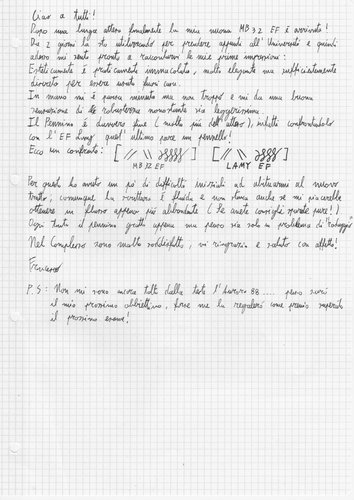 Ciao a tutti!
Dopo una lunga attesa finalmente la mia nuova MB 32 EF è arrivata!
Da 2 giorni la sto utilizzando per prendere appunti all'Università e quindi
adesso mi sento pronto a raccontarvi le mie prime impressioni:
Esteticamente è praticamente immacolata, molto elegante ma sufficientemente
discreta per essere usata fuori casa.
In mano mi è parsa pesante ma non troppo e mi da una buona
sensazione di robustezza nonostante sia leggerissima.
Il Pennino è davvero fine (molto più dell'altro), infatti confrontandolo
con l'EF Lamy quest'ultimo pare un pennello!
Ecco un confronto: [ // \\ ] [ // \\ ]
MB 32 EF LAMY EF
Per questo ho avuto un pò di difficoltà iniziali ad abituarmi al nuovo
tratto, comunque la scrittura è fluida e non stanca anche se mi piacerebbe
ottenere un flusso appena più abbondante (Se avete consigli sparate pure!)
Ogni tanto il pennino gratta appena ma penso sia solo un problema di "rodaggio"
Nel Complesso sono molto soddisfatto, vi ringrazio e saluto con affetto!
Francesco
P.S: Non mi sono ancora tolto dalla testa l'Aurora 88.... penso sarà
il mio prossimo obbiettivo, forse me la regalerò come premio superato
il prossimo esame!